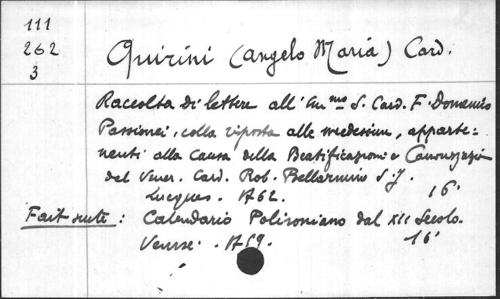 111
262
3
Quirini (Angelo Maria) Card.
Raccolta di lettere all' Em.mo S. Card. F. Domenico
Passionei, colla riposta alle medesime, apparte=
nenti alla Causa della Beatificazione e Canonizzazione
del Vener. Card. Rob. Bellarmino S.J.
Lucques. 1762. 16°
Fait suite : Calendario Polironiano dal XII Secolo.
Venise. 1759. 16°